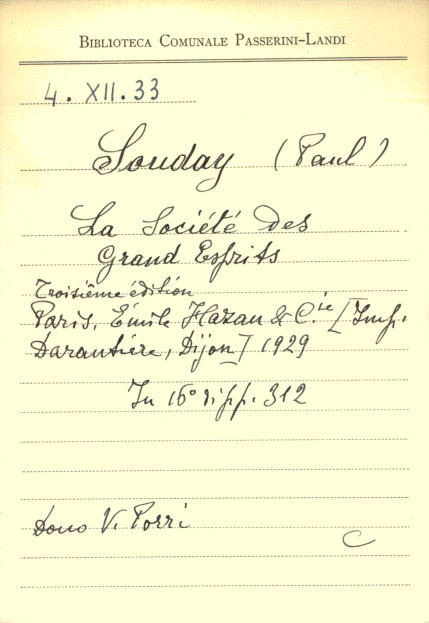 BIBLIOTECA COMUNALE PASSERINI-LANDI
4. XII. 33
Souday (Paul)
La Société des
Grand Esprits
Troisième édition
Paris, Émile Hazan & C.ie [Imp.
Darantière, Dijon] 1929
In 16° di pp. 312
Dono V. Porri
C